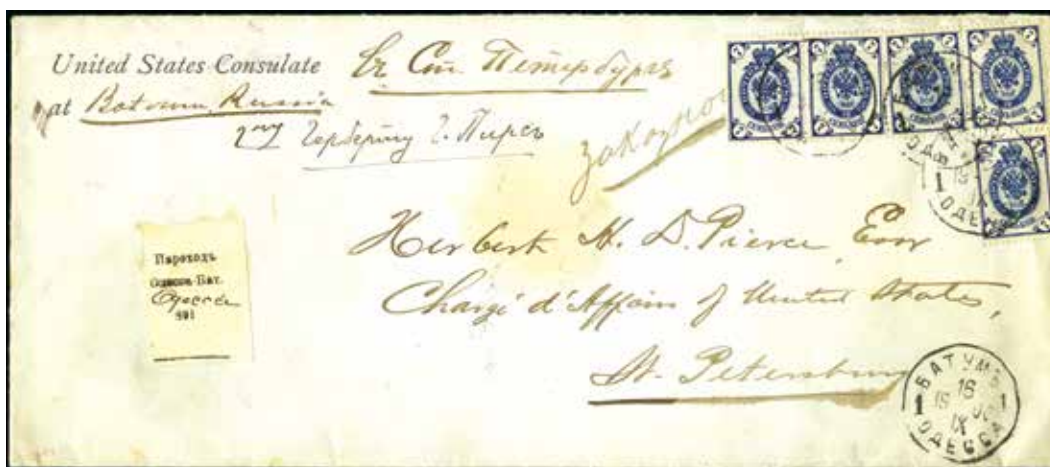 United States Consulate
at Batoum, Russia
Въ Ст. Петербургъ
Герберту Г. Пирсъ
заказное
Пароходъ
Одесса-Бат.
Одесса
Herbert H. D. Pierce Esqr
Chargé d'Affairs of United States,
St. Petersburg
БАТУМЪ
1 1
18
IX
ОДЕССА